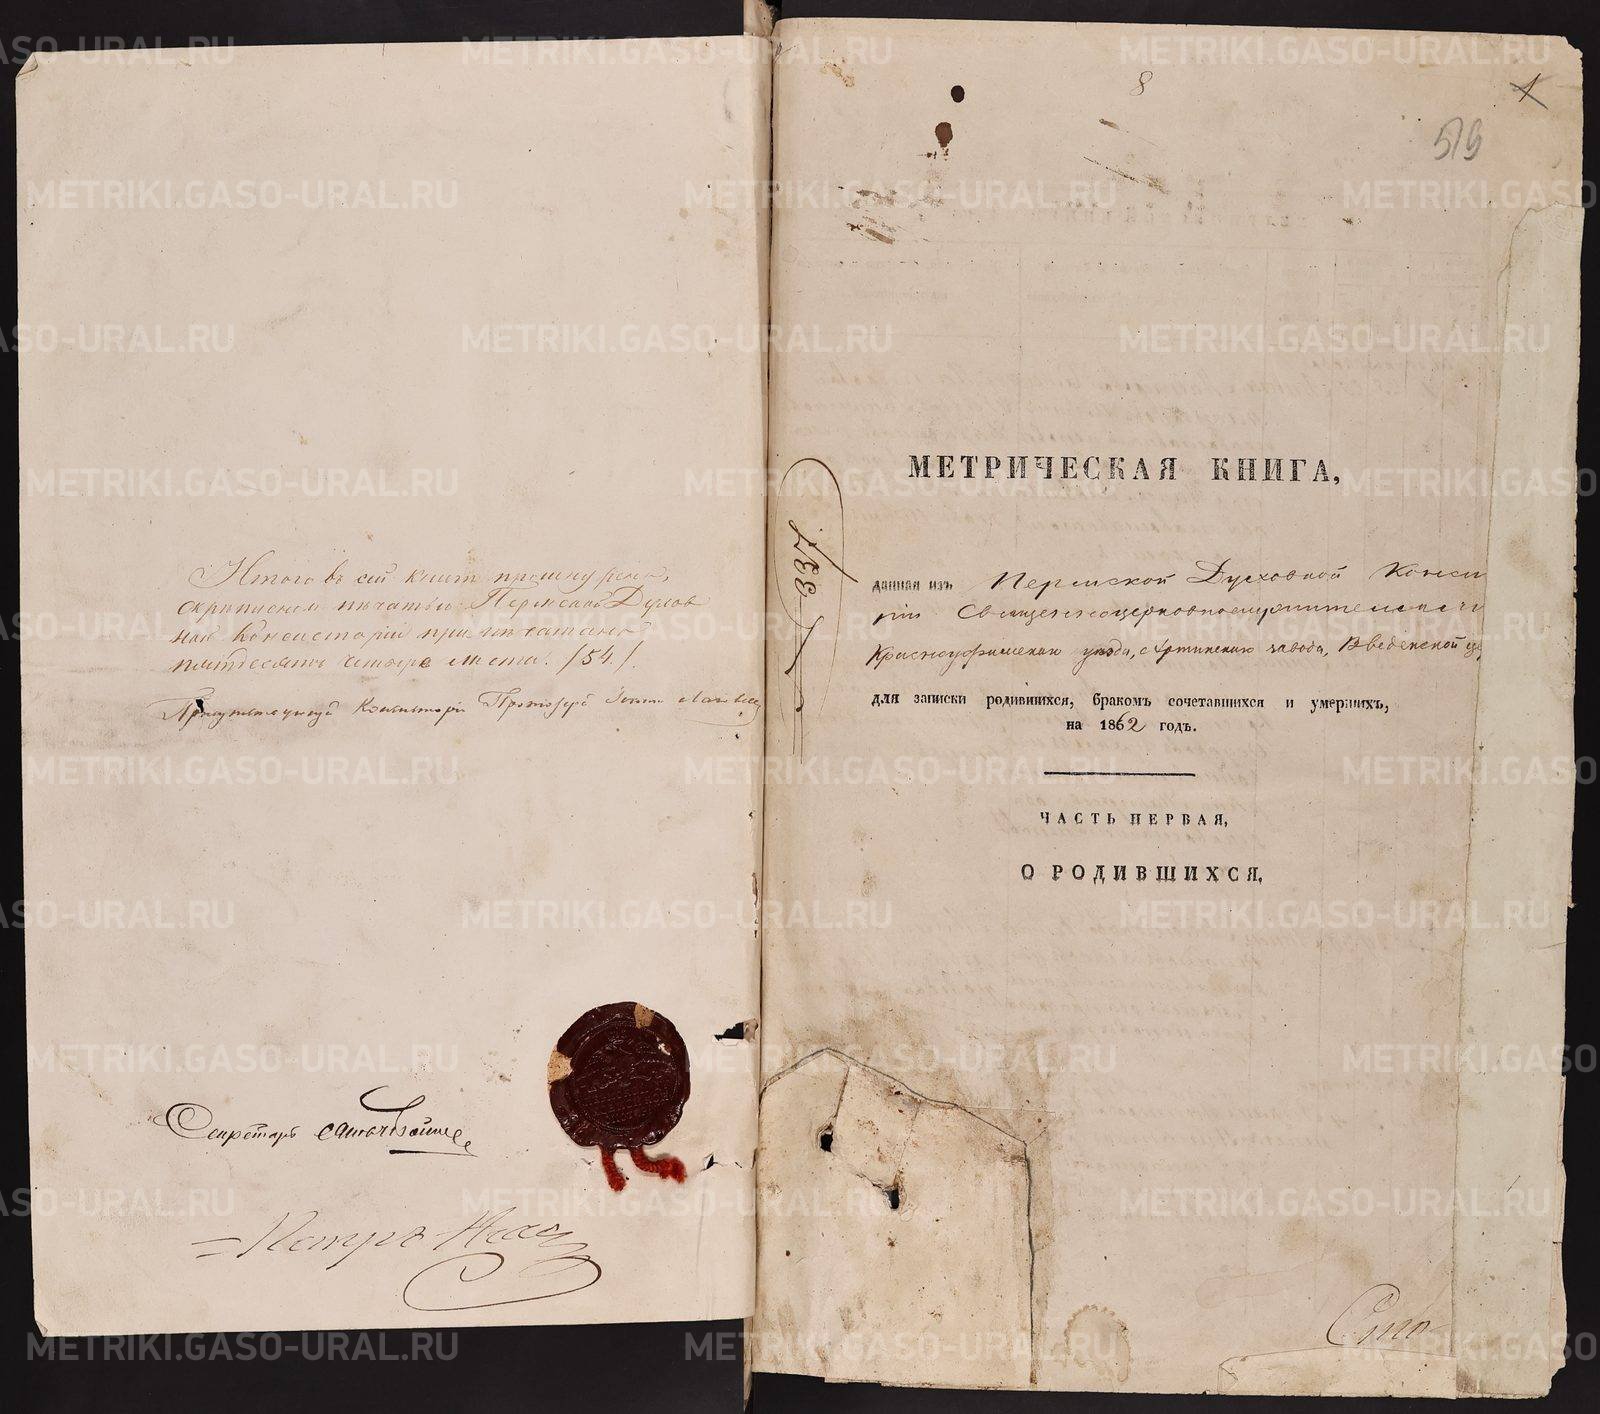 Итого въ сей книге прошнурен
скрепленн печатью Пермской Духов
ной Консисторіи припечатанн
пятьдесятъ четыре листа. /54./.
Присутствующій Консисторіи Протоіерей
Секретарь
Петръ
8
1
519
№ 337
МЕТРИЧЕСКАЯ КНИГА,
данная изъ Пермской Духовной Конси
ріи Священноцерковнослужителямъ
Красноуфимскаго уезда, Артинскаго завода, Введенской це
для записки родившихся, бракомъ сочетавшихся и умершихъ,
на 1862 годъ.
ЧАСТЬ ПЕРВАЯ,
О РОДИВШИХСЯ.
METRIKI.GASO-URAL.RU